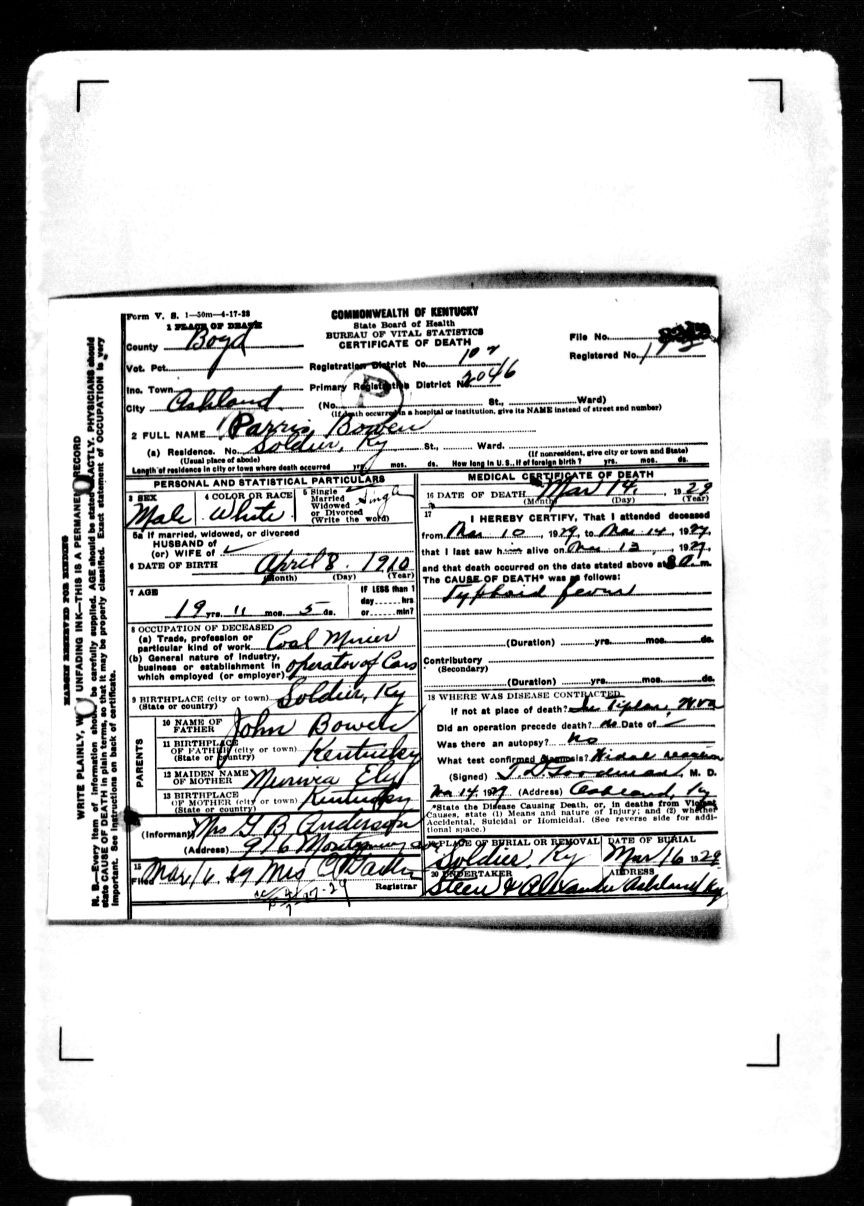 Form V. S. 1—50m—4-17-28
COMMONWEALTH OF KENTUCKY
State Board of Health
BUREAU OF VITAL STATISTICS
CERTIFICATE OF DEATH
1 PLACE OF DEATH
County Boyd
Vot. Pct.
Inc. Town
City Ashland
File No.
Registered No. 172
Registration District No. 102
Primary Registration District No. 2046
(No. St., Ward)
(If death occurred in a hospital or institution, give its NAME instead of street and number)
2 FULL NAME Parris Bowen
(a) Residence. No. Soldier, Ky St., Ward.
(Usual place of abode) (If nonresident, give city or town and State)
Length of residence in city or town where death occurred yrs. mos. ds. How long in U.S., if of foreign birth? yrs. mos. ds.
PERSONAL AND STATISTICAL PARTICULARS
3 SEX Male
4 COLOR OR RACE White
5 Single Married Widowed or Divorced (Write the word) Single
5a If married, widowed, or divorced
HUSBAND of
(or) WIFE of
6 DATE OF BIRTH April 8 1910
(Month) (Day) (Year)
7 AGE
19 yrs. 11 mos. 5 ds.
IF LESS than 1
day hrs
or min?
8 OCCUPATION OF DECEASED
(a) Trade, profession or
particular kind of work Coal Miner
(b) General nature of industry,
business or establishment in
which employed (or employer) operator of Cars
9 BIRTHPLACE (city or town) Soldier, Ky
(State or country)
PARENTS
10 NAME OF FATHER John Bowen
11 BIRTHPLACE OF FATHER (city or town) Kentucky
(State or country)
12 MAIDEN NAME OF MOTHER Ely
13 BIRTHPLACE OF MOTHER (city or town) Kentucky
(State or country)
(Informant) Mrs G B Anderson
(Address) 916 Montgomery
15 Filed Mar 16 29 Mrs
Registrar
MEDICAL CERTIFICATE OF DEATH
16 DATE OF DEATH Mar 14, 1929
(Month) (Day) (Year)
17 I HEREBY CERTIFY, That I attended deceased
from Mar 10, 1929, to Mar 14, 1929,
that I last saw h alive on Mar 13, 1929,
and that death occurred on the date stated above at 8 a. m.
The CAUSE OF DEATH* was as follows:
Typhoid fever
(Duration) yrs. mos. ds.
Contributory
(Secondary)
(Duration) yrs. mos. ds.
18 WHERE WAS DISEASE CONTRACTED
If not at place of death? W.Va
Did an operation precede death? No Date of
Was there an autopsy? No
What test confirmed diagnosis? Widal reaction
(Signed) M. D.
Mar 14, 1929 (Address) Ashland, Ky
*State the Disease Causing Death, or, in deaths from Violent
Causes, state (1) Means and nature of Injury; and (2) whether
Accidental, Suicidal or Homicidal. (See reverse side for addi-
tional space.)
19 PLACE OF BURIAL OR REMOVAL Soldier, Ky
DATE OF BURIAL Mar 16 1929
20 UNDERTAKER Steen & Alexander
ADDRESS Ashland Ky
MARGIN RESERVED FOR BINDING
WRITE PLAINLY, WITH UNFADING INK—THIS IS A PERMANENT RECORD
N. B.—Every item of information should be carefully supplied. AGE should be stated EXACTLY. PHYSICIANS should
state CAUSE OF DEATH in plain terms, so that it may be properly classified. Exact statement of OCCUPATION is very
important. See instructions on back of certificate.